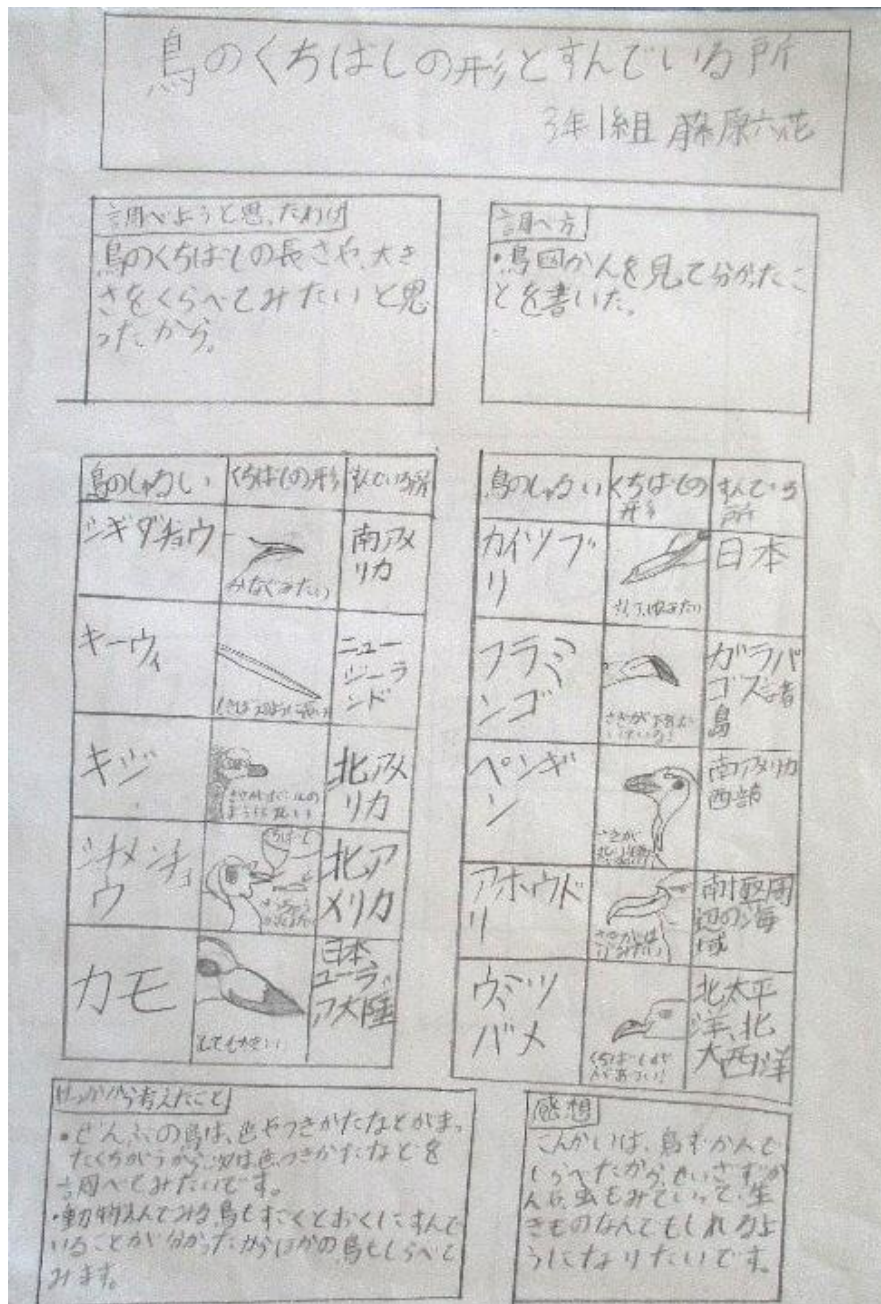 鳥のくちばしの形とすんでいる所
3年1組 藤原六花
調べようと思ったわけ
鳥のくちばしの長さや、大き
さをくらべてみたいと思
ったから。
調べ方
・鳥図かんを見て分かったこ
とを書いた。
鳥のしゅるい くちばしの形 すんでいる所
シギダチョウ
みたい
南アメ
リカ
キーウィ
ニュー
ジーラ
ンド
キジ
北アメ
リカ
シチメンチョ
ウ
くちばし
北ア
メリカ
カモ
とても
日本、
ユーラシ
ア大陸
鳥のしゅるい くちばしの
形 すんでいる
所
カイツブ
リ
日本
フラミ
ンゴ
さきが
ガラパ
ゴス諸
島
ペンギ
ン
さきが
南アメリカ
西部
アホウド
リ
南極周
辺の海
域
ウミツ
バメ
くちばしが
北太平
洋、北
大西洋
けっかから考えたこと
・ぜんぶの鳥は、色やつきかたなどがまっ
たくちがうから、次は色、つきかたなどを
調べてみたいです。
・動物えんでみる鳥もすごくとおくにすんで
いることが分かったからほかの鳥もしらべて
みます。
感想
こんかいは、鳥ずかんで
しらべたから、せいざずか
んに、虫もみていって、生
きものなんでもしれるよ
うになりたいです。